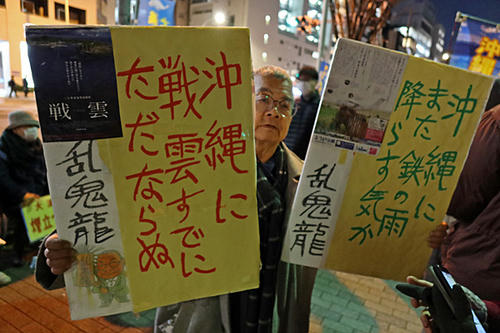 沖縄に
戦雲すでに
だだならぬ
戦雲
乱鬼龍
沖縄に
また鉄の雨
降らす気が
乱鬼龍